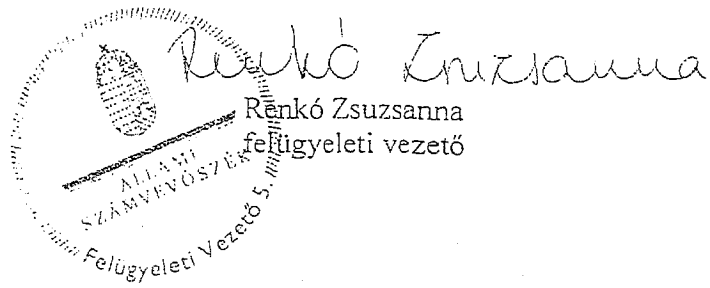 Renkó Zsuzsanna
Renkó Zsuzsanna
felügyeleti vezető
ÁLLAMI
SZÁMVEVŐSZÉK
Felügyeleti Vezető 5.